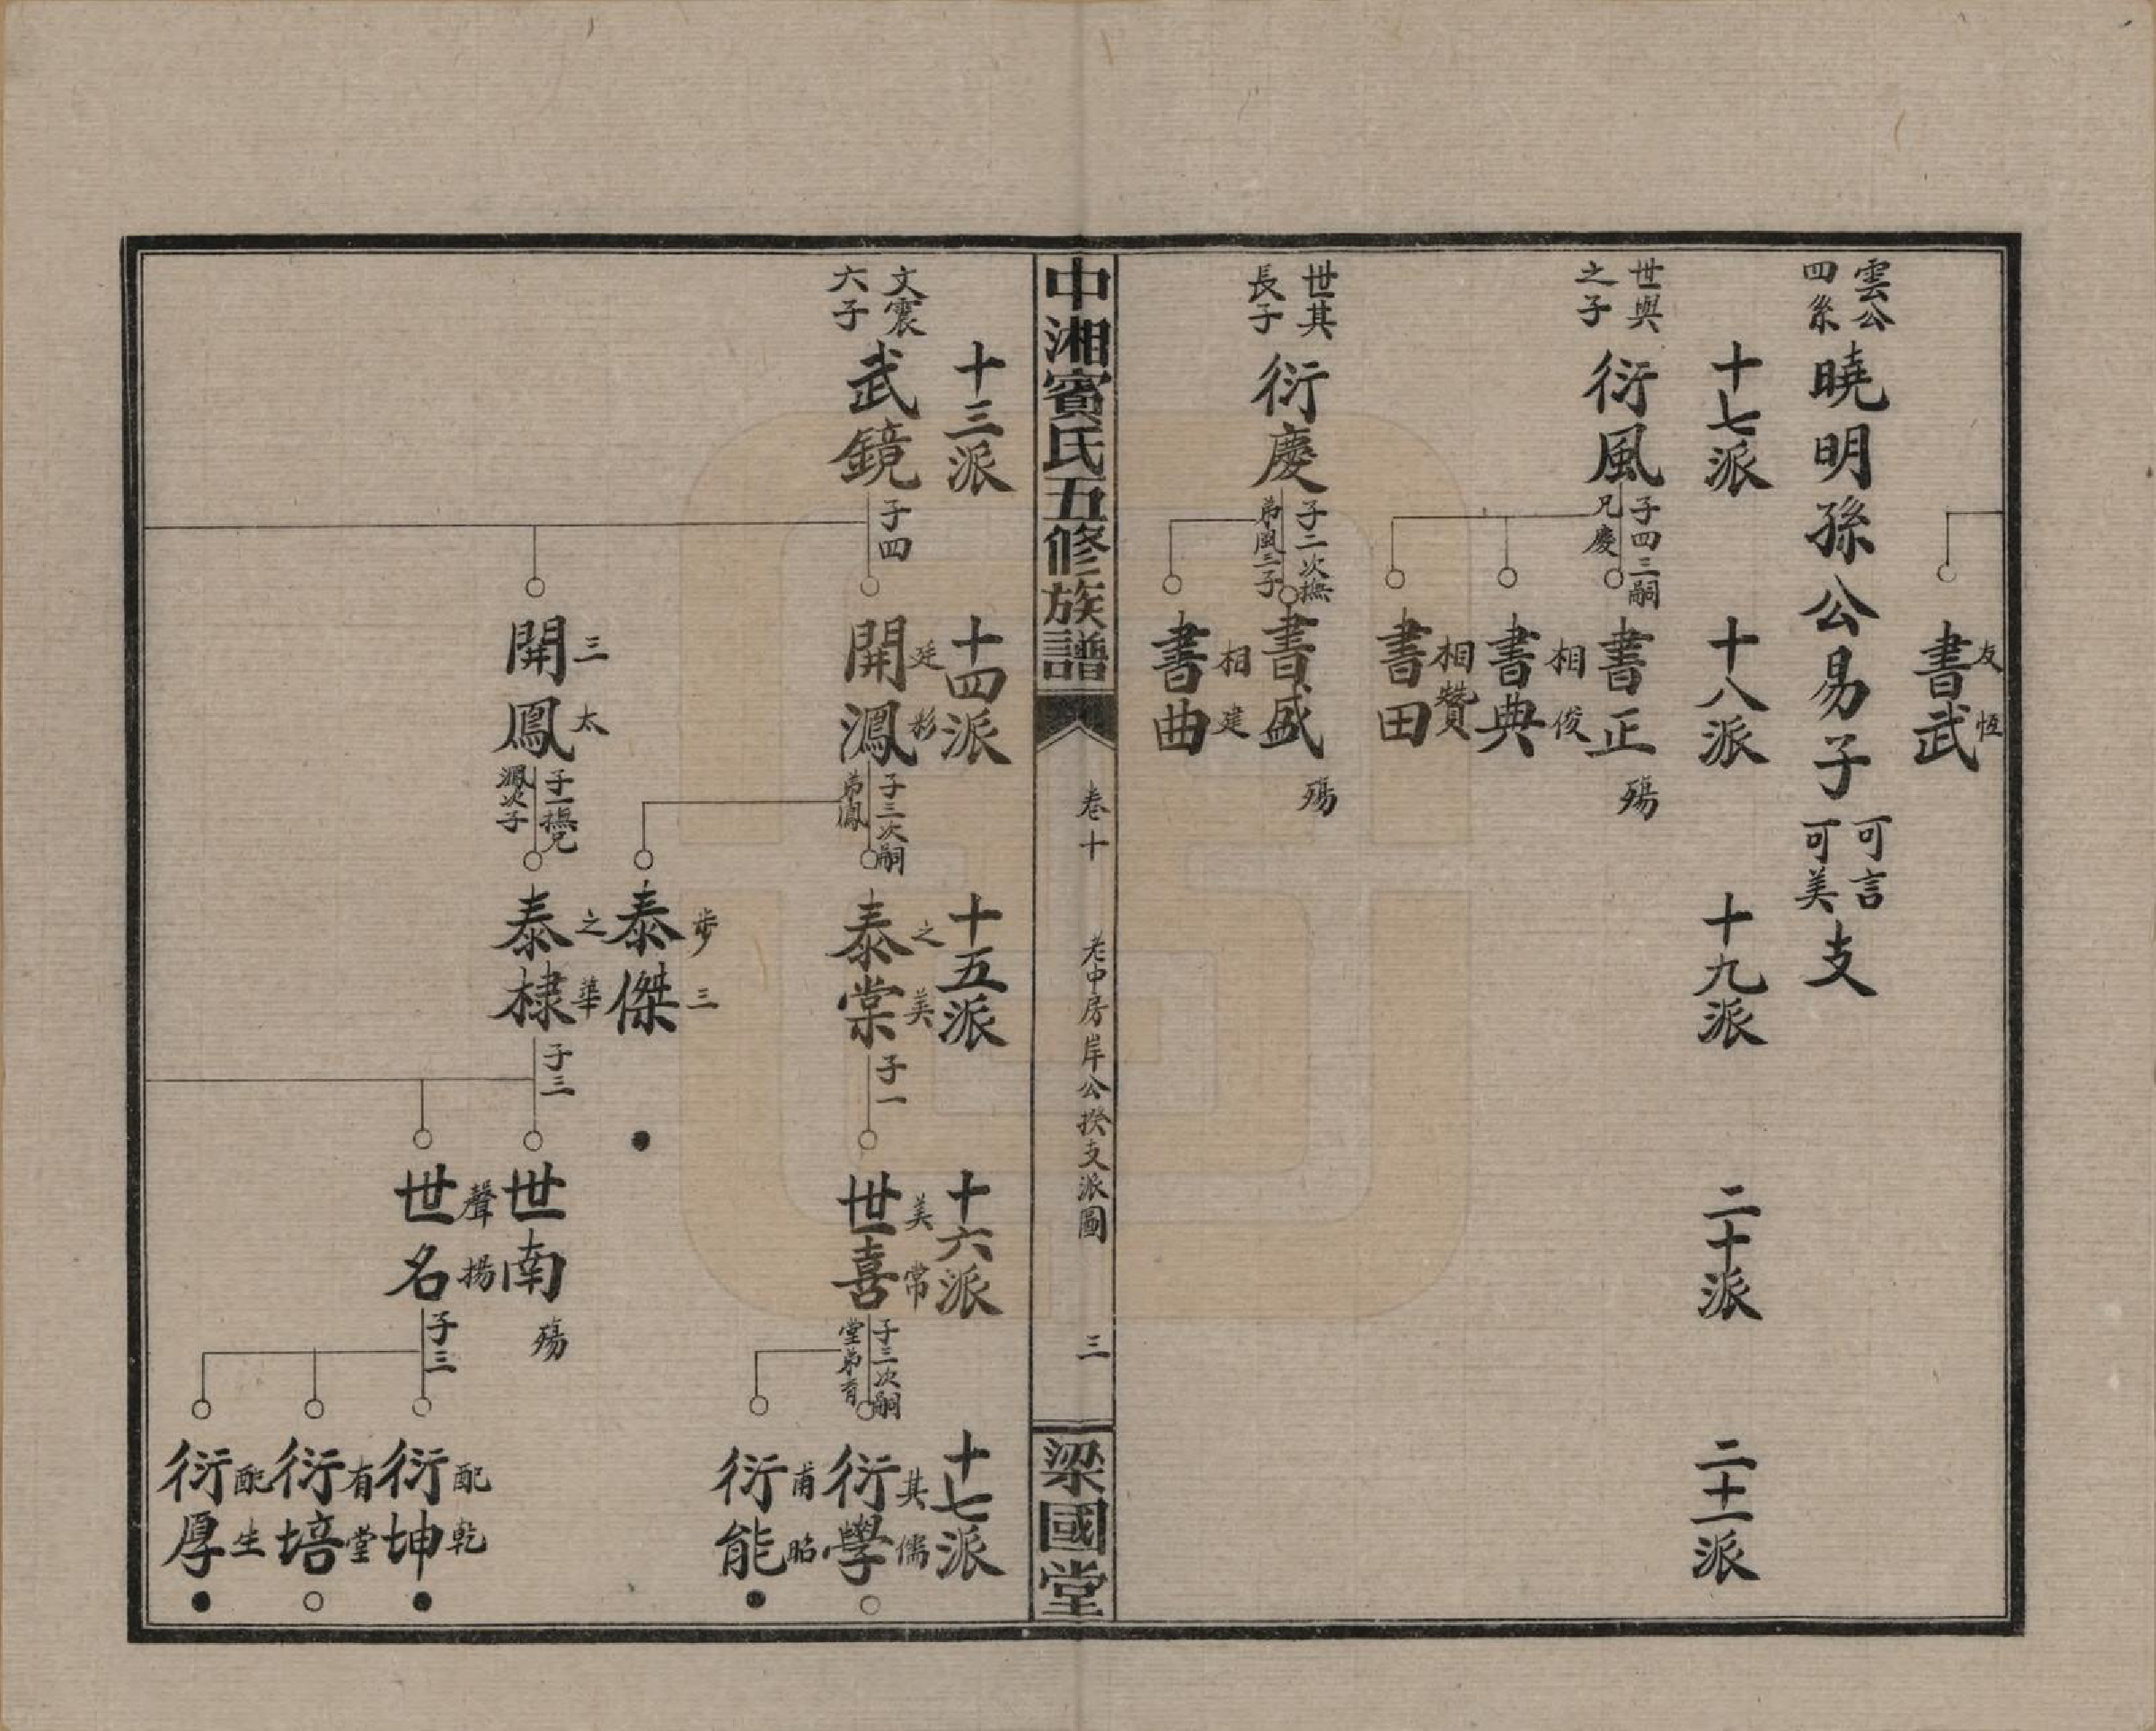 書武 友恆
雲公四系 曉明孫公易子 可言可美 支
十七派 十八派 十九派 二十派 二十一派
世興之子 衍風 子四三嗣兄慶 書正 殤
書典 相俊
書田 相贊
世其長子 衍慶 子二次撫弟風三子 書盛 殤
書曲 相建
中湘賓氏五修族譜 卷十 老中房岸公揆支派圖 三 梁國堂
十三派 十四派 十五派 十六派 十七派
文震六子 武鏡 子四 開鴻 廷彬 子三次嗣弟鳳 泰棠 之美 子一 世喜 美常 子三次嗣堂弟有 衍學 其儒
衍能 甫昭
泰傑 步三
開鳳 三太 子一撫兄鴻次子 泰棣 之華 子三 世南 殤
世名 聲揚 子三 衍坤 配乾
衍培 有堂
衍厚 配生